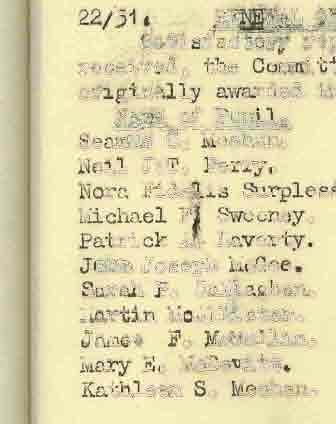 22/31. RENEWAL
Satisfactory
received, the Committ
originally awarded
Name of Pupil.
Seamus C. Meehan.
Neil J.T. Perry.
Nora Fidelis Surpless
Michael Sweeney.
Patrick Laverty.
John Joseph McGee.
Sarah F. Gallagher.
Martin
James F. McMullin.
Mary E. McDevitt.
Kathleen S. Meehan.